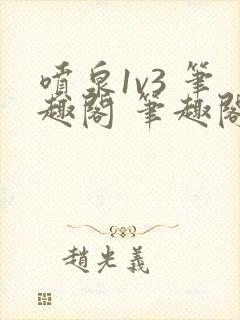 噴泉1v3 筆
趣閣 筆趣閣
趙光義